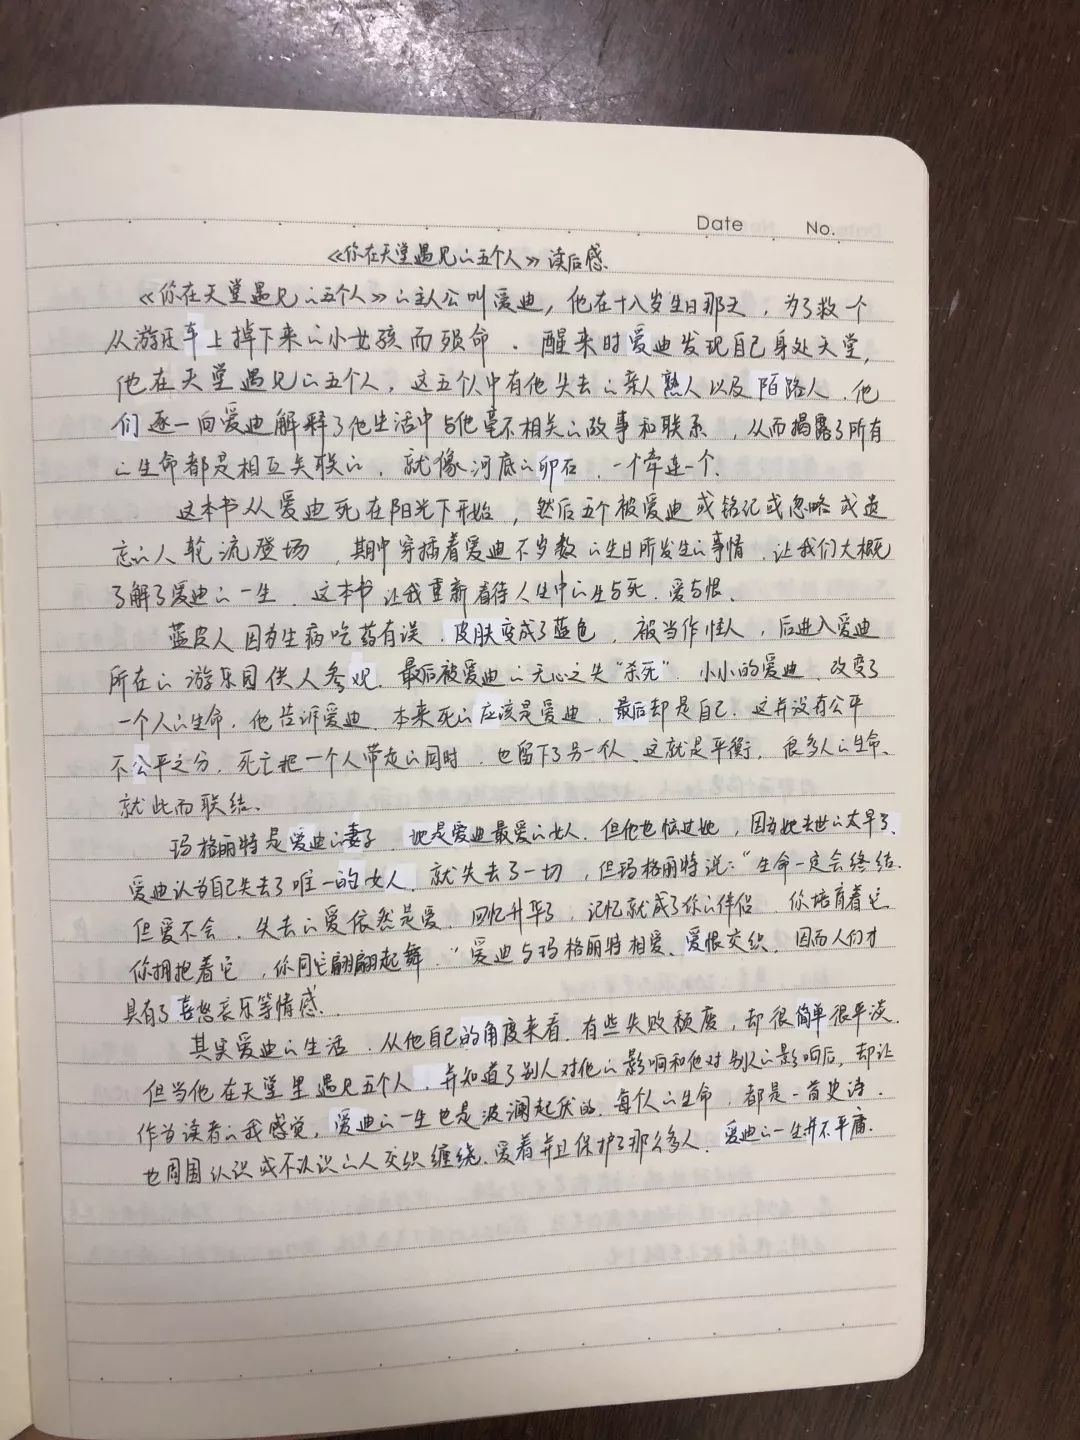 Date No.
《你在天堂遇见的五个人》读后感.
《你在天堂遇见的五个人》的主人公叫爱迪，他在十八岁生日那天，为了救一个
从游乐车上掉下来的小女孩而殒命．醒来时爱迪发现自己身处天堂，
他在天堂遇见的五个人，这五个人中有他失去的亲人熟人以及陌路人．他
们逐一向爱迪解释了他生活中与他毫不相关的故事和联系，从而揭露了所有
的生命都是相互关联的．就像河底的卵石．一个牵连一个．
这本书从爱迪死在阳光下开始，然后五个被爱迪或铭记或忽略或遗
忘的人轮流登场，期中穿插着爱迪不岁数的生日所发生的事情．让我们大概
了解了爱迪的一生．这本书让我重新看待人生中的生与死．爱与恨．
蓝皮人因为生病吃药有误．皮肤变成了蓝色，被当作怪人，后进入爱迪
所在的游乐园供人参观．最后被爱迪的无心之失“杀死”．小小的爱迪．改变了
一个人的生命．他告诉爱迪．本来死的应该是爱迪．最后却是自己．这并没有公平
不公平之分．死亡把一个人带走的同时．也留下了另一个人．这就是平衡．很多人的生命、
就此而联结．
玛格丽特是爱迪的妻子．她是爱迪最爱的女人．但他也恨过她，因为她去世的太早了、
爱迪认为自己失去了唯一的女人．就失去了一切，但玛格丽特说：“生命一定会终结．
但爱不会．失去的爱依然是爱．回忆升华了，记忆就成了你的伴侣．你培育着它
你拥抱着它，你同它翩翩起舞．”爱迪与玛格丽特相爱、爱恨交织．因而人们才
具有了喜怒哀乐等情感．
其实爱迪的生活．从他自己的角度来看．有些失败颓废，却很简单很平淡．
但当他在天堂里遇见五个人．并知道了别人对他的影响和他对别人的影响后，却让
作为读者的我感觉，爱迪的一生也是波澜起伏的．每个人的生命，都是一首史诗．
也周围认识或不认识的人交织缠绕．爱着并且保护了那么多人．爱迪的一生并不平庸．